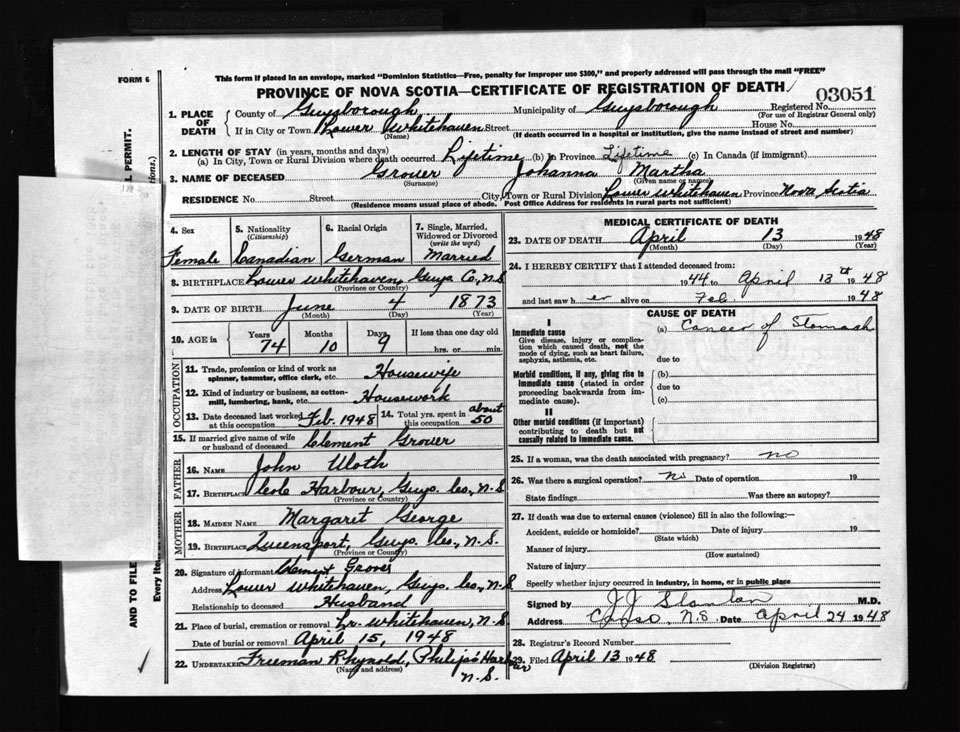 FORM 6
This form if placed in an envelope, marked "Dominion Statistics—Free, penalty for improper use $300," and properly addressed will pass through the mail "FREE"
PROVINCE OF NOVA SCOTIA—CERTIFICATE OF REGISTRATION OF DEATH
03051
1. PLACE OF DEATH
County of Guysborough Municipality of Guysborough Registered No.
(For use of Registrar General only)
If in City or Town Lower Whitehaven Street House No.
(Name) (If death occurred in a hospital or institution, give the name instead of street and number)
2. LENGTH OF STAY (in years, months and days)
(a) In City, Town or Rural Division where death occurred Lifetime (b) in Province Lifetime (c) In Canada (if immigrant)
3. NAME OF DECEASED Grover Johanna Martha
(Surname) (Given name or names)
RESIDENCE No. Street City, Town or Rural Division Lower Whitehaven Province Nova Scotia
(Residence means usual place of abode. Post Office Address for residents in rural parts not sufficient)
4. Sex Female
5. Nationality (Citizenship) Canadian
6. Racial Origin German
7. Single, Married, Widowed or Divorced (write the word) Married
8. BIRTHPLACE Lower Whitehaven, Guys. Co., N.S.
(Province or Country)
9. DATE OF BIRTH June 4 1873
(Month) (Day) (Year)
10. AGE in Years 74 Months 10 Days 9 If less than one day old hrs. or min.
OCCUPATION
11. Trade, profession or kind of work as spinner, teamster, office clerk, etc. Housewife
12. Kind of industry or business, as cotton-mill, lumbering, bank, etc. Housework
13. Date deceased last worked at this occupation Feb. 1948
14. Total yrs. spent in this occupation about 50
15. If married give name of wife or husband of deceased Clement Grover
FATHER
16. NAME John Uloth
17. BIRTHPLACE Cole Harbour, Guys. Co., N.S.
(Province or Country)
MOTHER
18. MAIDEN NAME Margaret George
19. BIRTHPLACE Queensport, Guys. Co., N.S.
(Province or Country)
20. Signature of informant Clement Grover
Address Lower Whitehaven, Guys. Co., N.S.
Relationship to deceased Husband
21. Place of burial, cremation or removal Lr. Whitehaven, N.S.
Date of burial or removal April 15, 1948
22. UNDERTAKER Freeman Rhynold, Philip's Harbour N.S.
(Name and address)
MEDICAL CERTIFICATE OF DEATH
23. DATE OF DEATH April 13 1948
(Month) (Day) (Year)
24. I HEREBY CERTIFY that I attended deceased from:
1944 to April 13th 1948
and last saw her alive on Feb. 1948
CAUSE OF DEATH
I
Immediate cause
Give disease, injury or complication which caused death, not the mode of dying, such as heart failure, asphyxia, asthenia, etc.
(a) Cancer of Stomach
due to
Morbid conditions, if any, giving rise to immediate cause (stated in order proceeding backwards from immediate cause).
(b)
due to
(c)
II
Other morbid conditions (if important) contributing to death but not causally related to immediate cause.
25. If a woman, was the death associated with pregnancy? no
26. Was there a surgical operation? No Date of operation 19
State findings Was there an autopsy?
27. If death was due to external causes (violence) fill in also the following:—
Accident, suicide or homicide? Date of injury 19
(State which)
Manner of injury
(How sustained)
Nature of injury
Specify whether injury occurred in industry, in home, or in public place
Signed by J J Stanton M.D.
Address Canso, N.S. Date April 24 1948
28. Registrar's Record Number
29. Filed April 13 1948
(Division Registrar)
L PERMIT.
tions.)
AND TO FILE
Every Ite